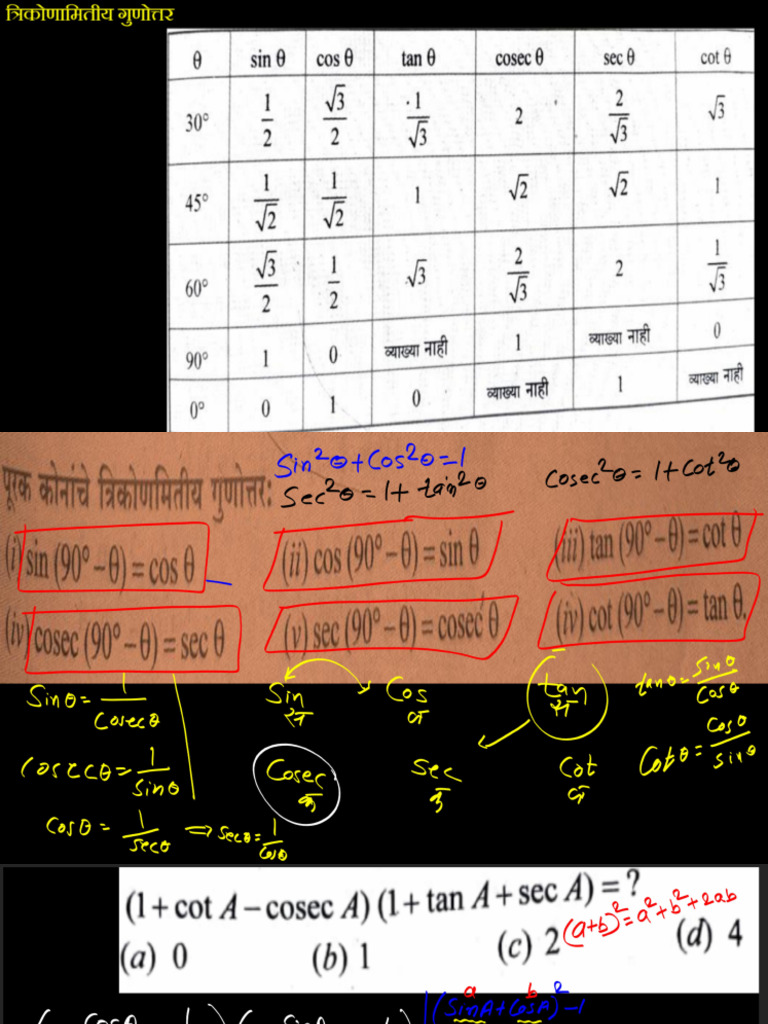 त्रिकोणामितीय गुणोत्तर
θ sin θ cos θ tan θ cosec θ sec θ cot θ
30° 1/2 √3/2 1/√3 2 2/√3 √3
45° 1/√2 1/√2 1 √2 √2 1
60° √3/2 1/2 √3 2/√3 2 1/√3
90° 1 0 व्याख्या नाही 1 व्याख्या नाही 0
0° 0 1 0 व्याख्या नाही 1 व्याख्या नाही
Sin²θ+Cos²θ=1
पूरक कोनांचे त्रिकोणमितीय गुणोत्तर: Sec²θ=1+tan²θ Cosec²θ=1+Cot²θ
(i) sin (90° – θ) = cos θ (ii) cos (90° – θ) = sin θ (iii) tan (90° – θ) = cot θ
(iv) cosec (90° – θ) = sec θ (v) sec (90° – θ) = cosec θ (iv) cot (90° – θ) = tan θ.
Sinθ = 1/Cosecθ Sin Cos tan tanθ = Sinθ/Cosθ
CosecCθ = 1/Sinθ Cosec Sec Cot Cotθ = Cosθ/Sinθ
Cosθ = 1/Secθ ⇒ Secθ = 1/Cosθ
(1 + cot A – cosec A) (1 + tan A + sec A) = ?
(a) 0 (b) 1 (c) 2 (a+b)²=a²+b²+2ab (d) 4
a b
(SinA+CosA)²-1